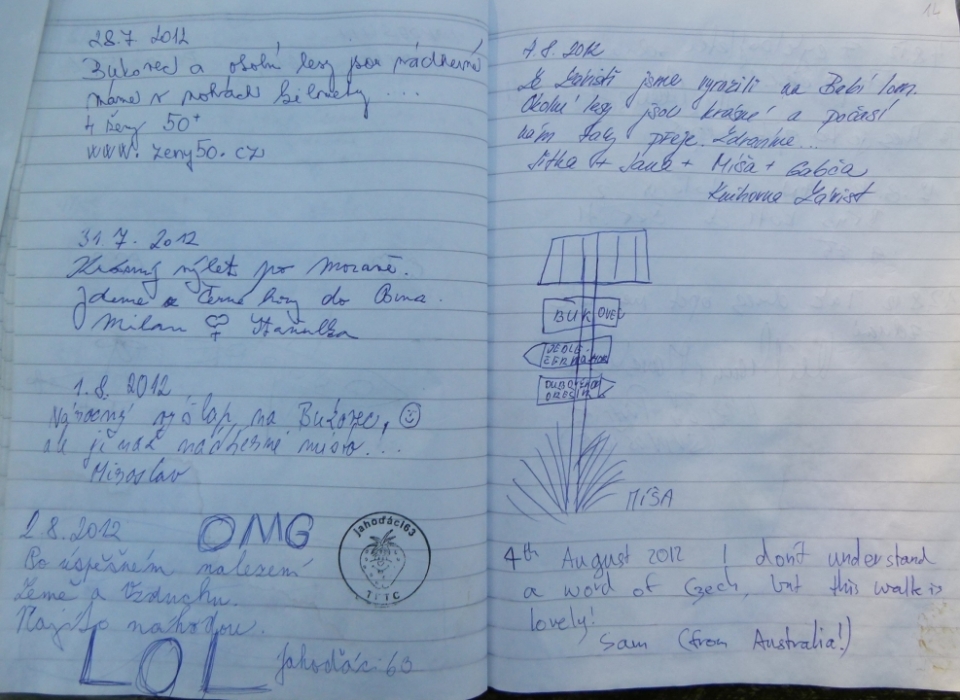 28.7 2012
Bukovec a okolní lesy jsou nádherné
máme v nohách kilometry ...
4 ženy 50+
www.zeny50.cz
31.7. 2012
Krásný výlet po Moravě.
Jdeme z Černé hory do Brna.
Milan Hanulka
1.8. 2012
Náročný výšlap na Bukovec,
ale jinak nádherné místo!..
Miroslav
2.8.2012 OMG
Po úspěšném nalezení
Země a Vzduchu.
Najito nahodou.
LOL jahodáci63
jahodáci63
TFTC
12
4.8. 2012
Ze Závisti jsme vyrazili na Babí lom.
Okolní lesy jsou krásné a počasí
nám taky přeje. Zdravíme...
Jitka + Jana + Míša + Gabča
Knihovna Závist
BUKOVEC
JEDLE-
MÍŠA
4th August 2012 I don't understand
a word of Czech, but this walk is
lovely!
Sam (from Australia!)